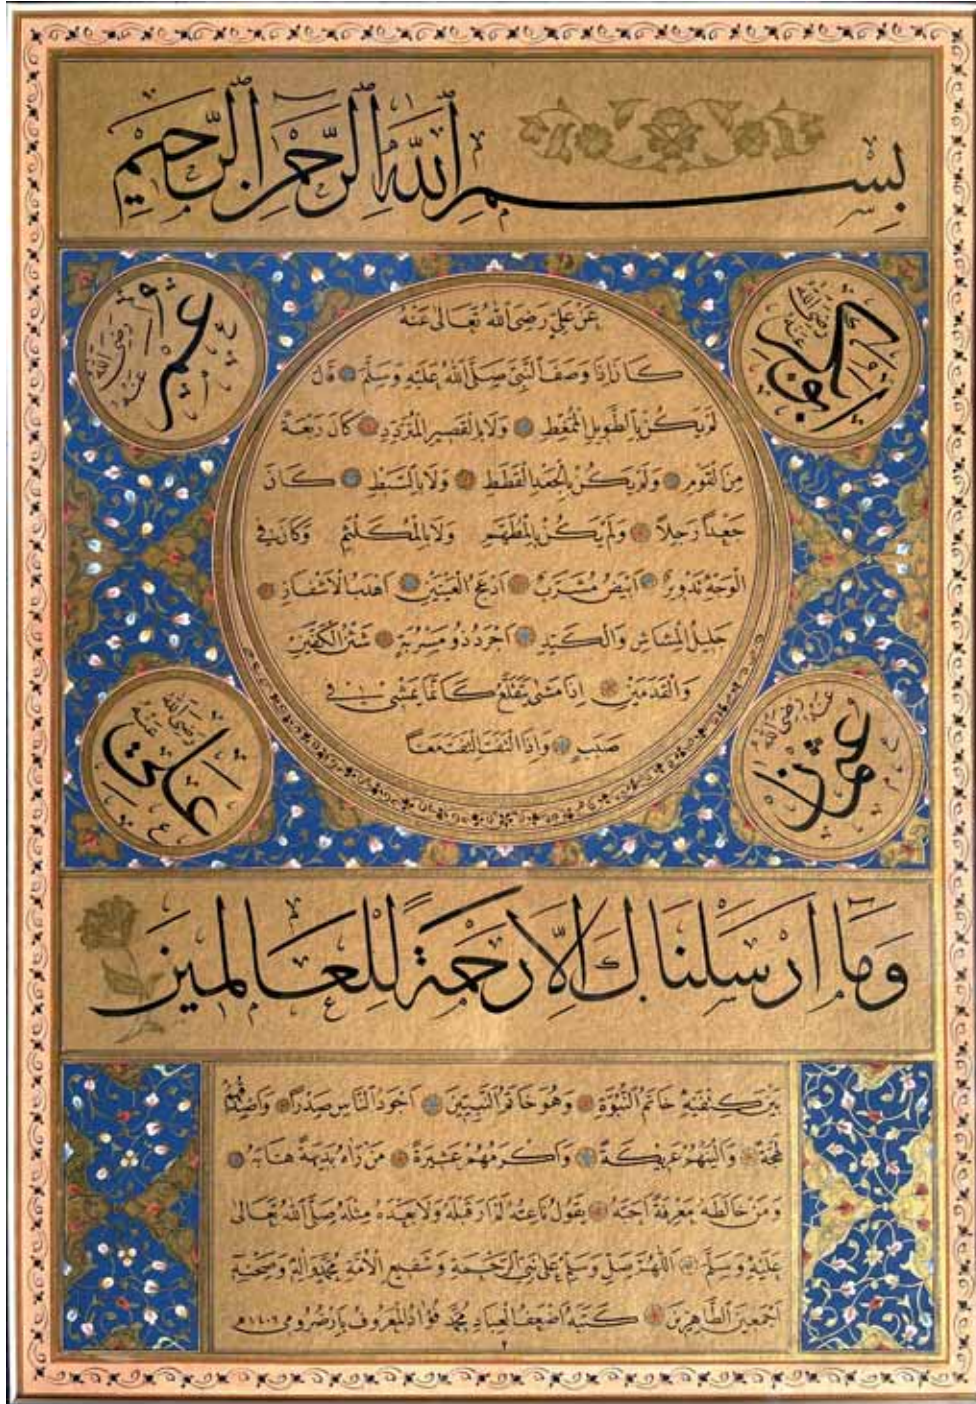 بِسْمِ ٱللّٰهِ ٱلرَّحْمٰنِ ٱلرَّحِيمِ
ابوبكر رضي الله عنه
عمر رضي الله عنه
عَنْ عَلِيٍّ رَضِىَ ٱللّٰهُ تَعَالٰى عَنْهُ
كَانَ اِذَا وَصَفَ ٱلنَّبِىَّ صَلَّى ٱللّٰهُ عَلَيْهِ وَسَلَّمَ قَالَ
لَمْ يَكُنْ بِالطَّوِيلِ الْمُمَّغِطِ وَلَا بِالْقَصِيرِ الْمُتَرَدِّدِ كَانَ رَبْعَةً
مِنَ الْقَوْمِ وَلَمْ يَكُنْ بِالْجَعْدِ الْقَطَطِ وَلَا بِالسَّبْطِ كَانَ
جَعْدًا رَجِلًا وَلَمْ يَكُنْ بِالْمُطَهَّمِ وَلَا بِالْمُكَلْثَمِ وَكَانَ فِى
الْوَجْهِ تَدْوِيرٌ اَبْيَضُ مُشْرَبٌ اَدْعَجُ الْعَيْنَيْنِ اَهْدَبُ الْاَشْفَارِ
جَلِيلُ الْمُشَاشِ وَالْكَتَدِ اَجْرَدُ ذُو مَسْرُبَةٍ شَثْنُ الْكَفَّيْنِ
وَالْقَدَمَيْنِ اِذَا مَشٰى يَتَقَلَّعُ كَاَنَّمَا يَمْشِى فِى
صَبَبٍ وَاِذَا الْتَفَتَ الْتَفَتَ مَعًا
عثمن رضي الله عنه
علي رضي الله عنه
وَمَا اَرْسَلْنَاكَ اِلَّا رَحْمَةً لِلْعَالَمِينَ
بَيْنَ كَتِفَيْهِ خَاتَمُ النُّبُوَّةِ وَهُوَ خَاتَمُ النَّبِيِّينَ اَجْوَدُ النَّاسِ صَدْرًا وَاَصْدَقُهُمْ
لَهْجَةً وَاَلْيَنُهُمْ عَرِيكَةً وَاَكْرَمُهُمْ عَشِيرَةً مَنْ رَاٰهُ بَدِيهَةً هَابَهُ
وَمَنْ خَالَطَهُ مَعْرِفَةً اَحَبَّهُ يَقُولُ نَاعِتُهُ لَمْ اَرَ قَبْلَهُ وَلَا بَعْدَهُ مِثْلَهُ صَلَّى ٱللّٰهُ تَعَالٰى
عَلَيْهِ وَسَلَّمَ اَللّٰهُمَّ صَلِّ وَسَلِّمْ عَلٰى نَبِىِّ الرَّحْمَةِ وَشَفِيعِ الْاُمَّةِ مُحَمَّدٍ وَاٰلِهِ وَصَحْبِهِ
اَجْمَعِينَ الطَّاهِرِينَ كَتَبَهُ اَضْعَفُ الْعِبَادِ مُحَمَّد فُؤَاد الْمَعْرُوف بِاَرْضُرُومِى ١٤٠٦هـ